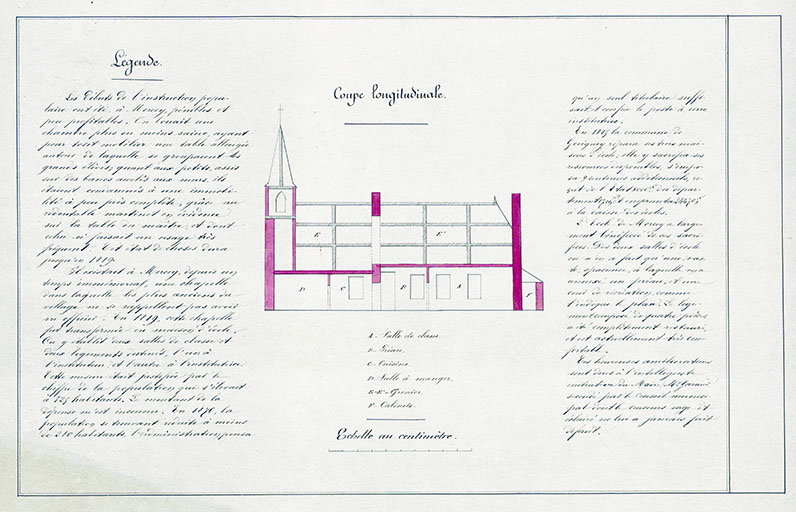 Légende.
Les débuts de l'instruction popu-
laire ont été, à Morcey, pénibles et
peu profitables. On louait une
chambre plus ou moins saine, ayant
pour tout mobilier une table allongée
autour de laquelle se groupaient les
grands élèves; quant aux petits, assis
sur des bancs accolés aux murs, ils
étaient condamnés à une immobi-
lité à peu près complète, grâce au
martinet en évidence
sur la table du maître, et dont
celui-ci faisait un usage très
fréquent. Cet état de choses dura
jusqu'en 1819.
Il existait à Morcey, depuis un
temps immémorial, une chapelle
dans laquelle les plus anciens du
village ne se rappellent pas avoir
vu officier. En 1819, cette chapelle
fut transformée en maison d'école.
On y établit deux salles de classe et
deux logements destinés, l'un à
l'instituteur, et l'autre à l'institutrice.
Cette mesure était justifiée par le
chiffre de la population qui s'élevait
à habitants. Le montant de la
dépense m'est inconnu. En 1876, la
population se trouvant réduite à moins
de habitants, l'administration pensa
Coupe longitudinale.
E
E'
D
C
B
A
F
A - Salle de classe.
B - Préau.
C - Cuisine.
D - Salle à manger.
E-E' - Grenier.
F - Cabinets.
Echelle au centimètre.
qu'un seul titulaire suffi-
sait et confia le poste à une
institutrice.
En la commune de
répara ses trois mai-
sons d'école, elle y sacrifia ses
ressources disponibles, s'impo-
sa centimes additionnels, re-
çut de l'Etat du dépar-
tement et emprunta
à la caisse des écoles.
L'école de Morcey a large-
ment bénéficié de ces sacri-
fices. Des deux salles d'école
on n'en a fait qu'une, vas-
te, spacieuse, à laquelle on a
annexé un préau, et une
cour de récréation, comme
l'indique le plan. Le loge-
ment composé de quatre pièces
a été complètement restauré,
et est actuellement très con-
fortable.
Ces heureuses améliorations
sont dues à l'intelligente
initiative du Maire, Mr
secondé par le Conseil munici-
pal dont le concours sage et
éclairé ne lui a jamais fait
défaut.